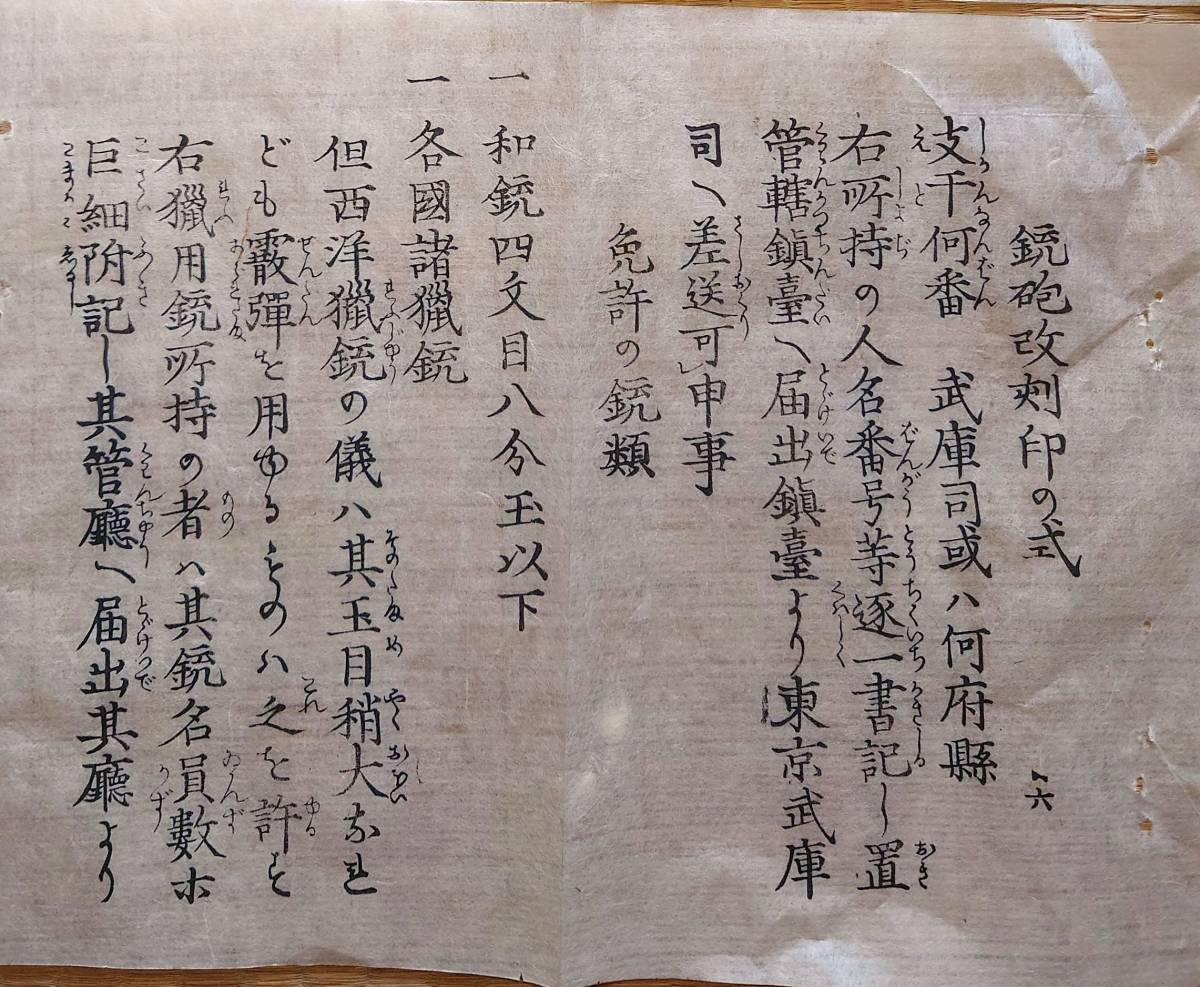 銃砲改刻印の式
支干何番 武庫司或ハ何府縣
右所持の人名番号等逐一書記し置
管轄鎮臺へ届出鎮臺より東京武庫
司へ差送可申事
免許の銃類
一 和銃四文目八分玉以下
一 各國諸獵銃
但西洋獵銃の儀ハ其玉目稍大なれ
ども霰彈を用ゆるものハ之を許す
右獵用銃所持の者ハ其銃名員數等
巨細附記し其管廳へ届出其廳より
六